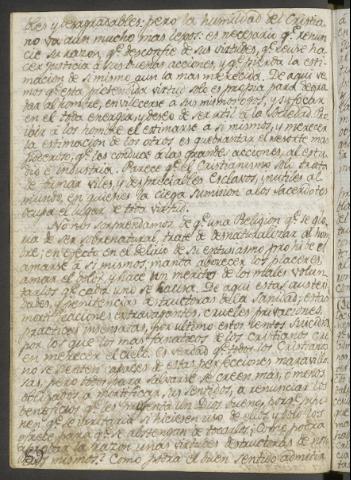 bles y desagradables; pero la humildad del Cristia-
no va aun mucho mas lejos: es necesario qe renun
cie su razon, qe desconfie de sus virtudes, qe rehuse ha
cer justicia á sus buenas acciones, y qe pierda la esti-
macion de si mismo aun la mas merecida. De aqui ve
mos qe esta pretendida virtud solo es propia para degra
dar al hombre, envilecerse a sus mismos ojos, y sofocar
en el toda energia, y deseo de ser util á la Sociedad. Pro
ibir á los hombres el estimarse á si mismos, y merecer
la estimacion de los otros es quebrantar el resorte mas
poderoso, qe los conduce á las grandes acciones, al estu
dio é industria. Parece qe el Cristianismo solo trata
de formar viles y despreciables Esclavos, inutiles al
mundo, en quienes la ciega sumision a los Sacerdotes
ocupa el lugar de toda virtud.
No nos sorprendamos de qe una Religion qe se glo
ria de ser sobrenatural, trate de desnaturalizar al hom
bre; en efecto en el delirio de su entusiasmo, prohibe el
amarse á si mismo; manda aborrecer los placeres,
amar el dolor, y hacer un merito de los males volun
tarios qe cada uno se causa. De aqui estas austeri
dades, y penitencias destructoras de la Sanidad; estas
mortificaciones extravagantes, crueles privaciones,
practicas insensatas, por ultimo estos lentos Suicidios
por los que los mas fanaticos de los Cristianos cre
en merecer el cielo. Es verdad qe todos los Cristianos
no se sienten capaces de estas perfecciones maravillo
sas, pero todos para salvarse se creen mas, ó menos
obligados á mortificar sus sentidos, á renunciar los
beneficios qe les presenta un Dios bueno, porqe supo
nen qe se irritaria si hiciesen uso de ellos, y solo los
ofrece para qe se abstengan de tocarlos. Como podra
aprobar la razon unas virtudes destructoras de no
sotros mismos? Como podra el buen Sentido admitir